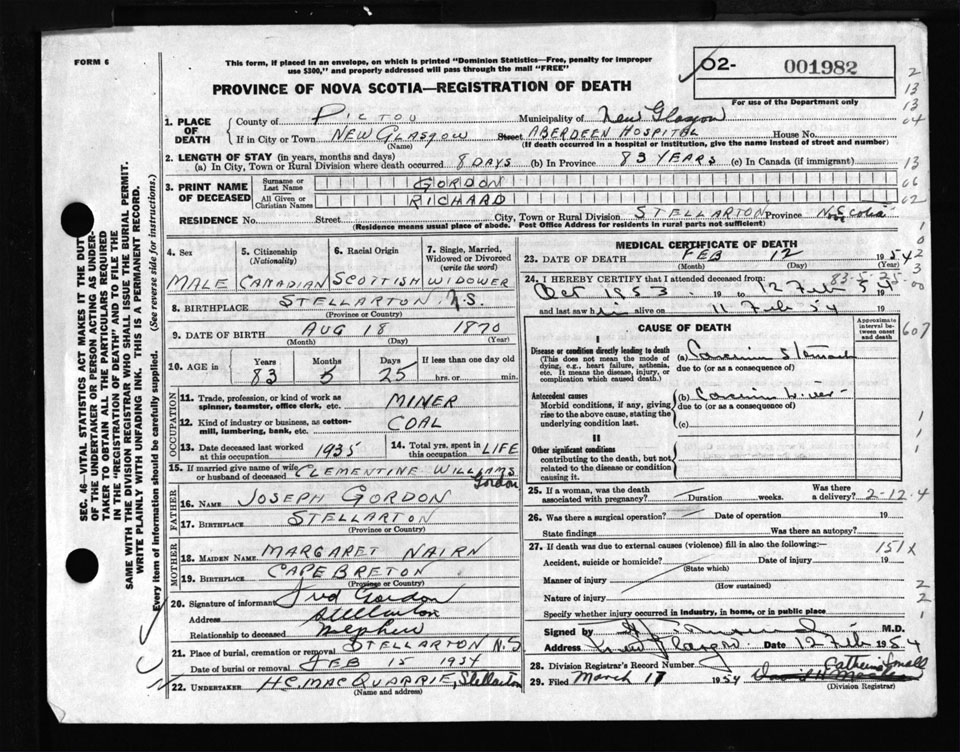 FORM 6
This form, if placed in an envelope, on which is printed "Dominion Statistics—Free, penalty for improper
use $300," and properly addressed will pass through the mail "FREE"
PROVINCE OF NOVA SCOTIA—REGISTRATION OF DEATH
02- 001982
For use of the Department only
1. PLACE OF DEATH
County of PICTOU Municipality of New Glasgow
If in City or Town NEW GLASGOW Street ABERDEEN HOSPITAL House No.
(Name) (If death occurred in a hospital or institution, give the name instead of street and number)
2. LENGTH OF STAY (in years, months and days)
(a) In City, Town or Rural Division where death occurred 8 DAYS (b) In Province 83 YEARS (c) In Canada (if immigrant)
3. PRINT NAME OF DECEASED
Surname or Last Name GORDON
All Given or Christian Names RICHARD
RESIDENCE No. Street City, Town or Rural Division STELLARTON Province N. Scotia
(Residence means usual place of abode. Post Office Address for residents in rural parts not sufficient)
4. Sex MALE
5. Citizenship (Nationality) CANADIAN
6. Racial Origin SCOTTISH
7. Single, Married, Widowed or Divorced (write the word) WIDOWER
8. BIRTHPLACE STELLARTON N.S.
(Province or Country)
9. DATE OF BIRTH AUG 18 1870
(Month) (Day) (Year)
10. AGE in Years 83 Months 5 Days 25 If less than one day old hrs. or min.
OCCUPATION
11. Trade, profession, or kind of work as spinner, teamster, office clerk, etc. MINER
12. Kind of industry or business, as cotton-mill, lumbering, bank, etc. COAL
13. Date deceased last worked at this occupation 1935
14. Total yrs. spent in this occupation LIFE
15. If married give name of wife or husband of deceased CLEMENTINE WILLIAMS Gordon
FATHER
16. NAME JOSEPH GORDON
17. BIRTHPLACE STELLARTON
(Province or Country)
MOTHER
18. MAIDEN NAME MARGARET NAIRN
19. BIRTHPLACE CAPE BRETON
(Province or Country)
20. Signature of informant Fred Gordon
Address Stellarton
Relationship to deceased Nephew
21. Place of burial, cremation or removal STELLARTON N.S
Date of burial or removal FEB 15 1954
22. UNDERTAKER H.C. MACQUARRIE, Stellarton
(Name and address)
MEDICAL CERTIFICATE OF DEATH
23. DATE OF DEATH FEB 12 1954
(Month) (Day)
83-5-25
24. I HEREBY CERTIFY that I attended deceased from:
Oct 1953 19 to 12 Feb 54 19
and last saw him alive on 11 Feb 54 19
CAUSE OF DEATH
Approximate interval between onset and death
I
Disease or condition directly leading to death
(This does not mean the mode of dying, e.g., heart failure, asthenia, etc. It means the disease, injury, or complication which caused death.)
(a) Carcinoma Stomach
due to (or as a consequence of)
Antecedent causes
Morbid conditions, if any, giving rise to the above cause, stating the underlying condition last.
(b) Carcinoma Liver
due to (or as a consequence of)
(c)
II
Other significant conditions
contributing to the death, but not related to the disease or condition causing it.
25. If a woman, was the death associated with pregnancy? Duration weeks. Was there a delivery? 2-12-4
26. Was there a surgical operation? Date of operation 19
State findings Was there an autopsy?
27. If death was due to external causes (violence) fill in also the following:— 151X
Accident, suicide or homicide? Date of injury 19
(State which)
Manner of injury
(How sustained)
Nature of injury
Specify whether injury occurred in industry, in home, or in public place
Signed by M.D.
Address New Glasgow Date 12 Feb 1954
28. Division Registrar's Record Number
29. Filed March 17 1954 Catherine Small
(Division Registrar)
SEC. 46—VITAL STATISTICS ACT MAKES IT THE DUTY
OF THE UNDERTAKER OR PERSON ACTING AS UNDER-
TAKER TO OBTAIN ALL THE PARTICULARS REQUIRED
IN THE "REGISTRATION OF DEATH" AND TO FILE THE
SAME WITH THE DIVISION REGISTRAR WHO SHALL ISSUE THE BURIAL PERMIT.
WRITE PLAINLY WITH UNFADING INK. THIS IS A PERMANENT RECORD.
Every item of information should be carefully supplied. (See reverse side for instructions.)
2
13
13
04
13
06
02
1
0
2
3
00
607
1
1
1
2
2
1